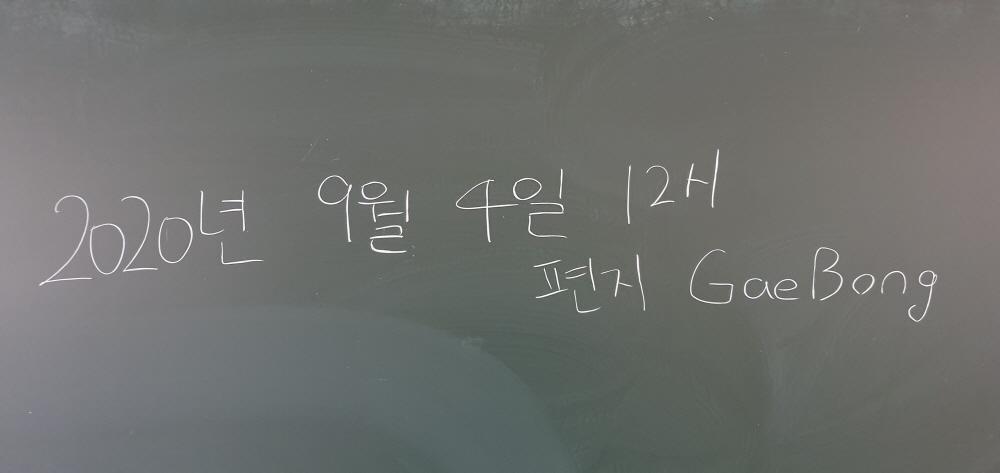 2020년 9월 4일 12시
편지 GaeBong